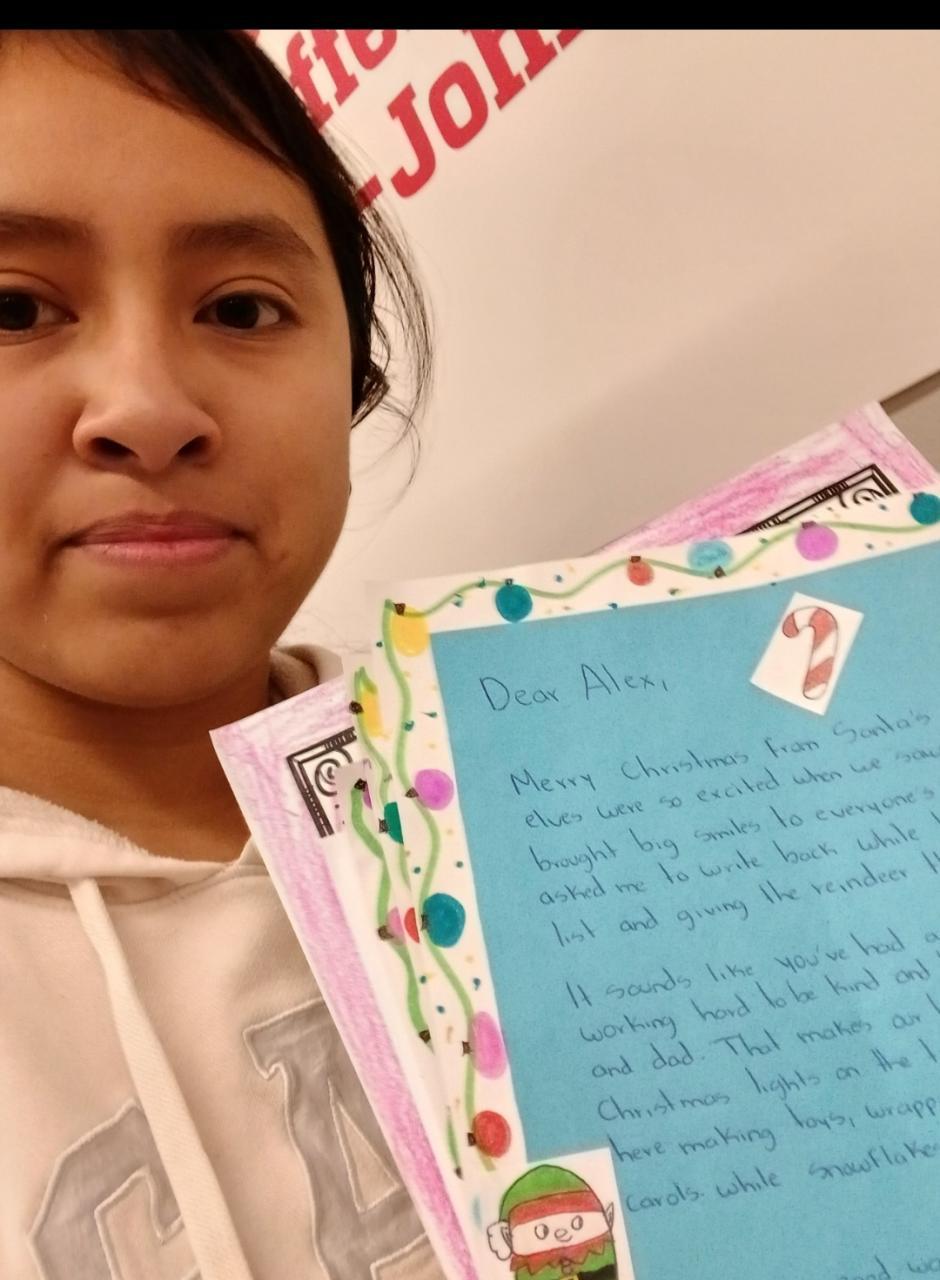 -John
Dear Alex,
Merry Christmas from Santa's
elves were so excited when we saw
brought big smiles to everyone's
asked me to write back while
list and giving the reindeer
It sounds like you've had a
working hard to be kind and
and dad. That makes our
Christmas lights on the
here making toys, wrapp
carols. while snowflake